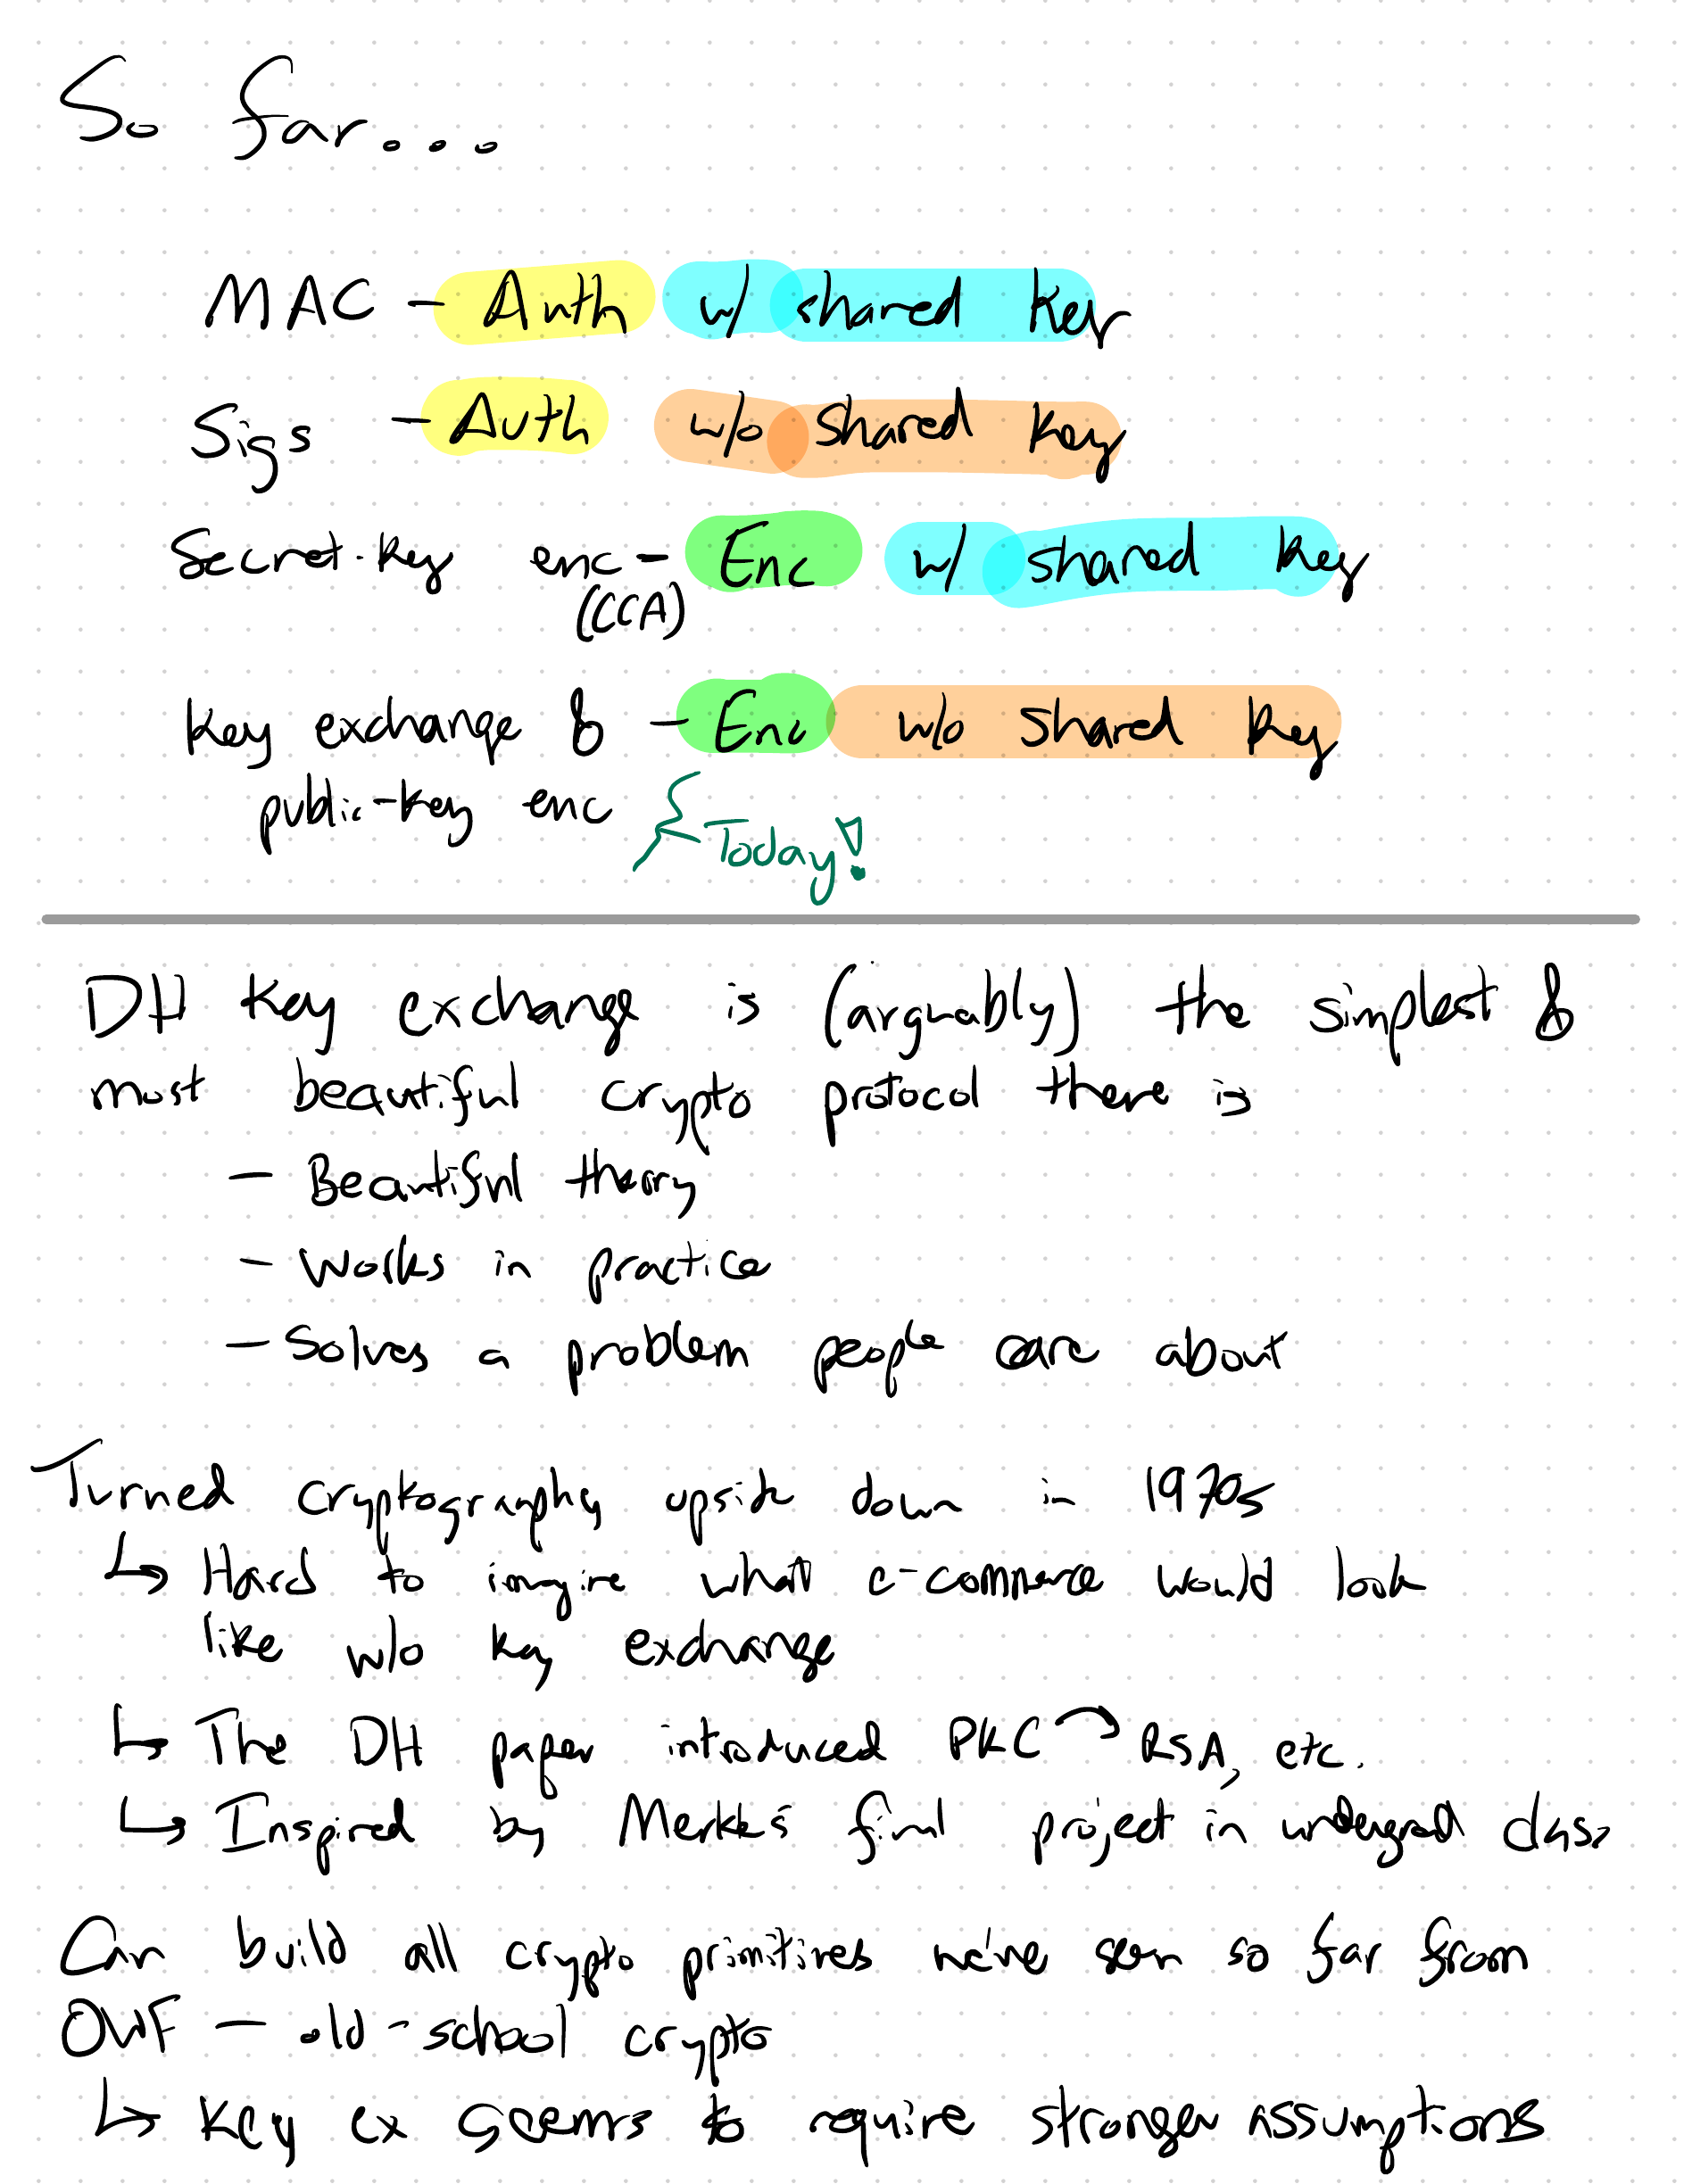 So far...
MAC - Auth w/ shared key
Sigs - Auth w/o shared key
Secret-key enc - Enc w/ shared key
(CCA)
key exchange & - Enc w/o shared key
public-key enc
Today!
DH key exchange is (arguably) the simplest &
most beautiful crypto protocol there is
- Beautiful theory
- Works in practice
- Solves a problem people care about
Turned cryptography upside down in 1970s
↳ Hard to imagine what e-commerce would look
like w/o key exchange
↳ The DH paper introduced PKC → RSA, etc.
↳ Inspired by Merkle's final project in undergrad class
Can build all crypto primitives we've seen so far from
OWF - old-school crypto
↳ key ex seems to require stronger assumptions